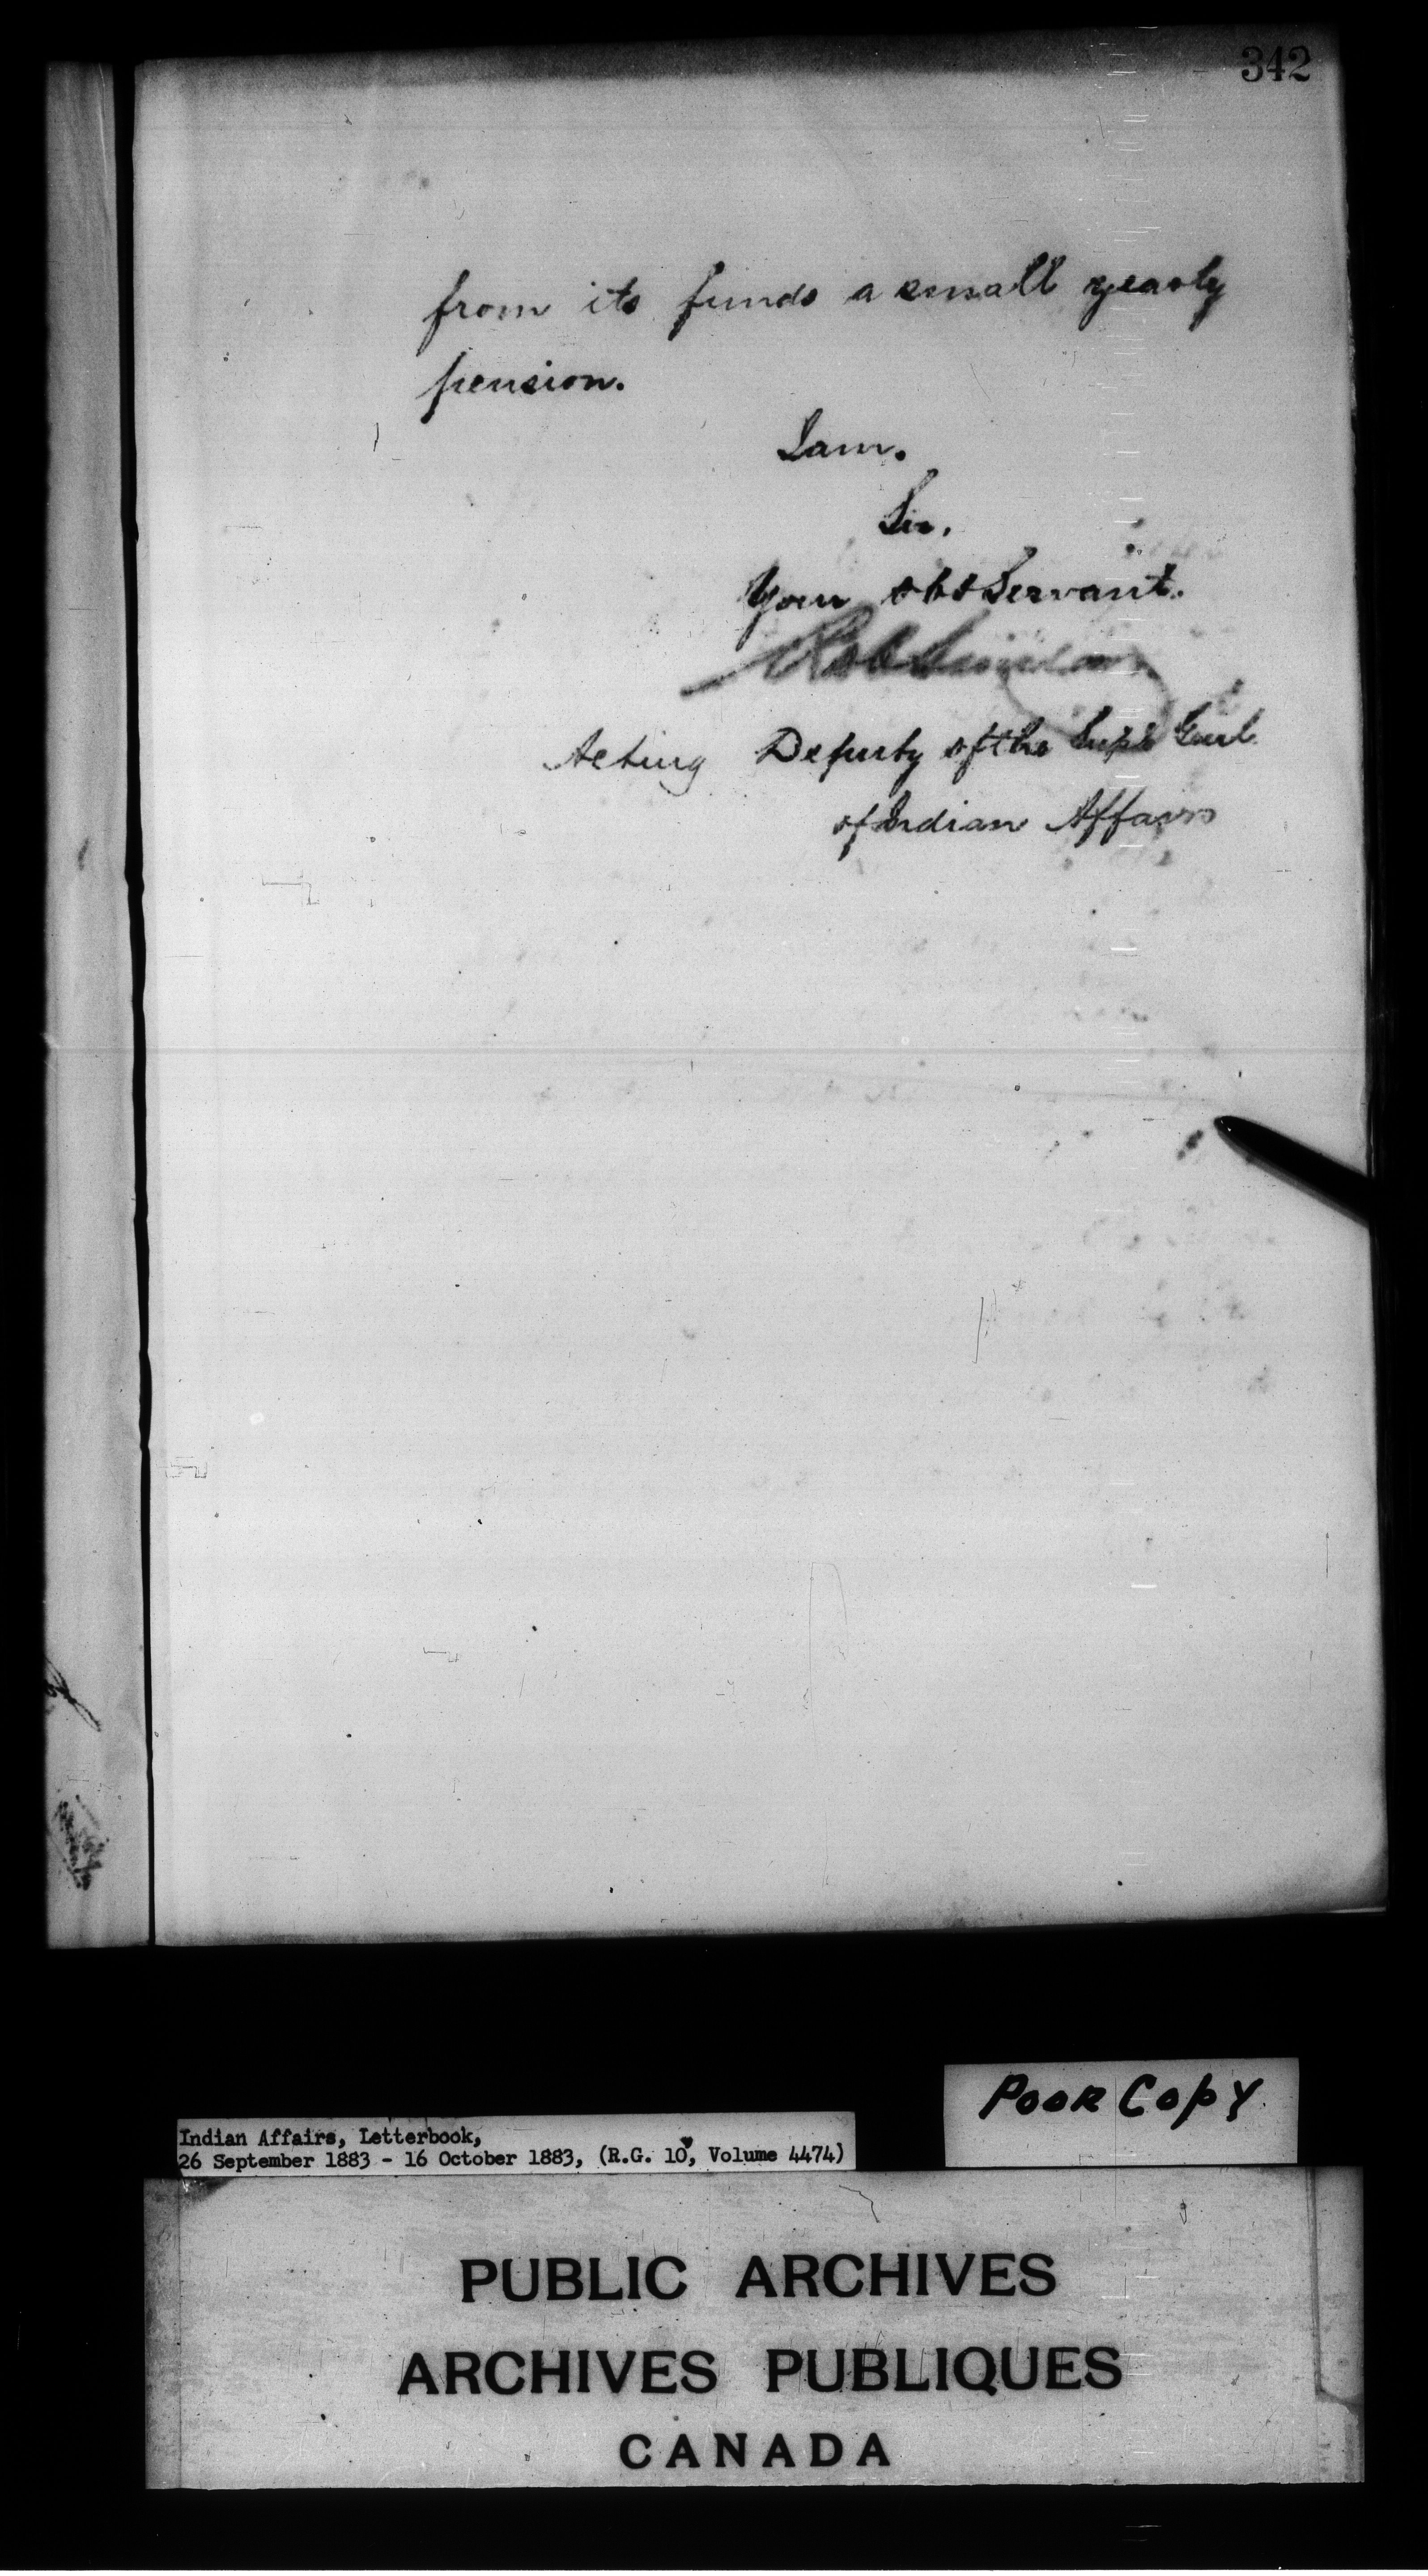 342
from its funds a small yearly
pension.
I am.
Sir,
Your obt Servant.
Acting Deputy of the Supt Genl
of Indian Affairs
Poor Copy.
Indian Affairs, Letterbook,
26 September 1883 - 16 October 1883, (R.G. 10, Volume 4474)
PUBLIC ARCHIVES
ARCHIVES PUBLIQUES
CANADA